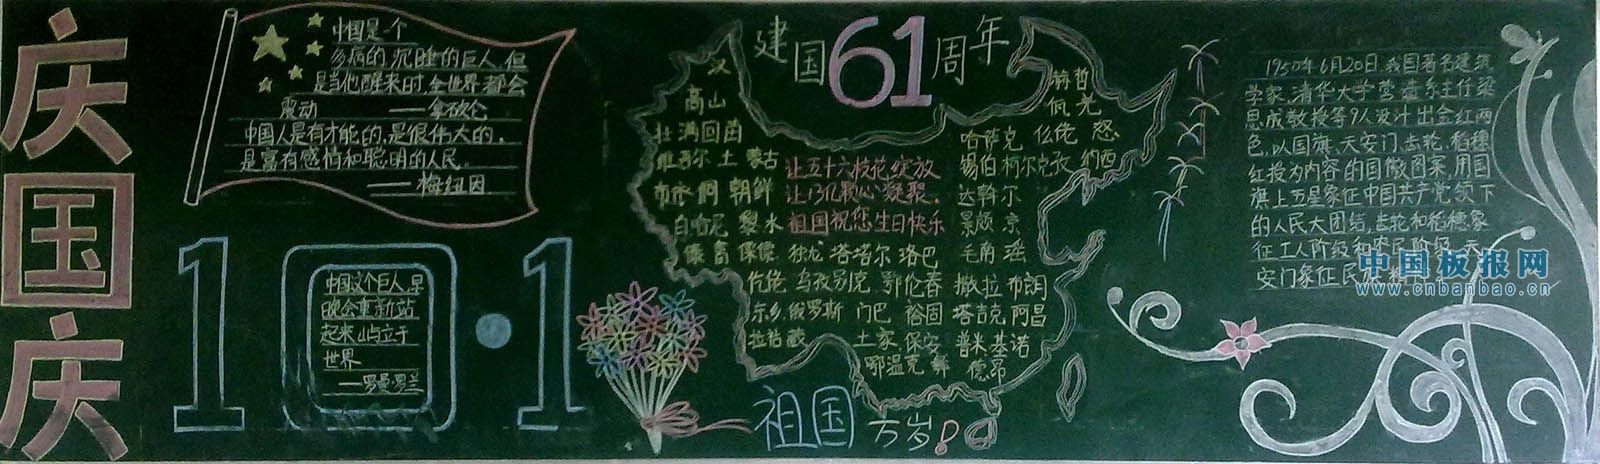 庆
国
庆
中国是一个
多病的,沉睡的巨人,但
是当他醒来时,全世界都会
震动 ——拿破仑
中国人是有才能的,是很伟大的,
是富有感情和聪明的人民。
——梅纽因
10·1
中国这个巨人,早
晚会重新站
起来屿立于
世界
——罗曼罗兰
建国61周年
汉
高山
壮满回苗
维吾尔 土 蒙古
布依 侗 朝鲜
白哈尼 黎 水
傣 畲 傈僳
赫哲
佤 羌
哈萨克 仫佬 怒
锡伯 柯尔克孜 纳西
达斡尔
景颇 京
毛南 瑶
让五十六枝花绽放
让13亿颗心凝聚,
祖国祝您生日快乐
独龙 塔塔尔 珞巴
仡佬 乌孜别克 鄂伦春 撒拉 布朗
东乡 俄罗斯 门巴 裕固 塔吉克 阿昌
拉祜 藏 土家 保安 普米 基诺
鄂温克 彝 德昂
祖国万岁!
1950年6月20日,我国著名建筑
学家,清华大学营造系主任梁
思成教授等9人设计出金红两
色,以国旗、天安门、齿轮、稻穗
红授为内容的国徽图案,用国
旗上五星象征中国共产党领下
的人民大团结,齿轮和稻穗象
征工人阶级和农民阶级,天
安门象征民
中国板报网
www.cnbanbao.cn